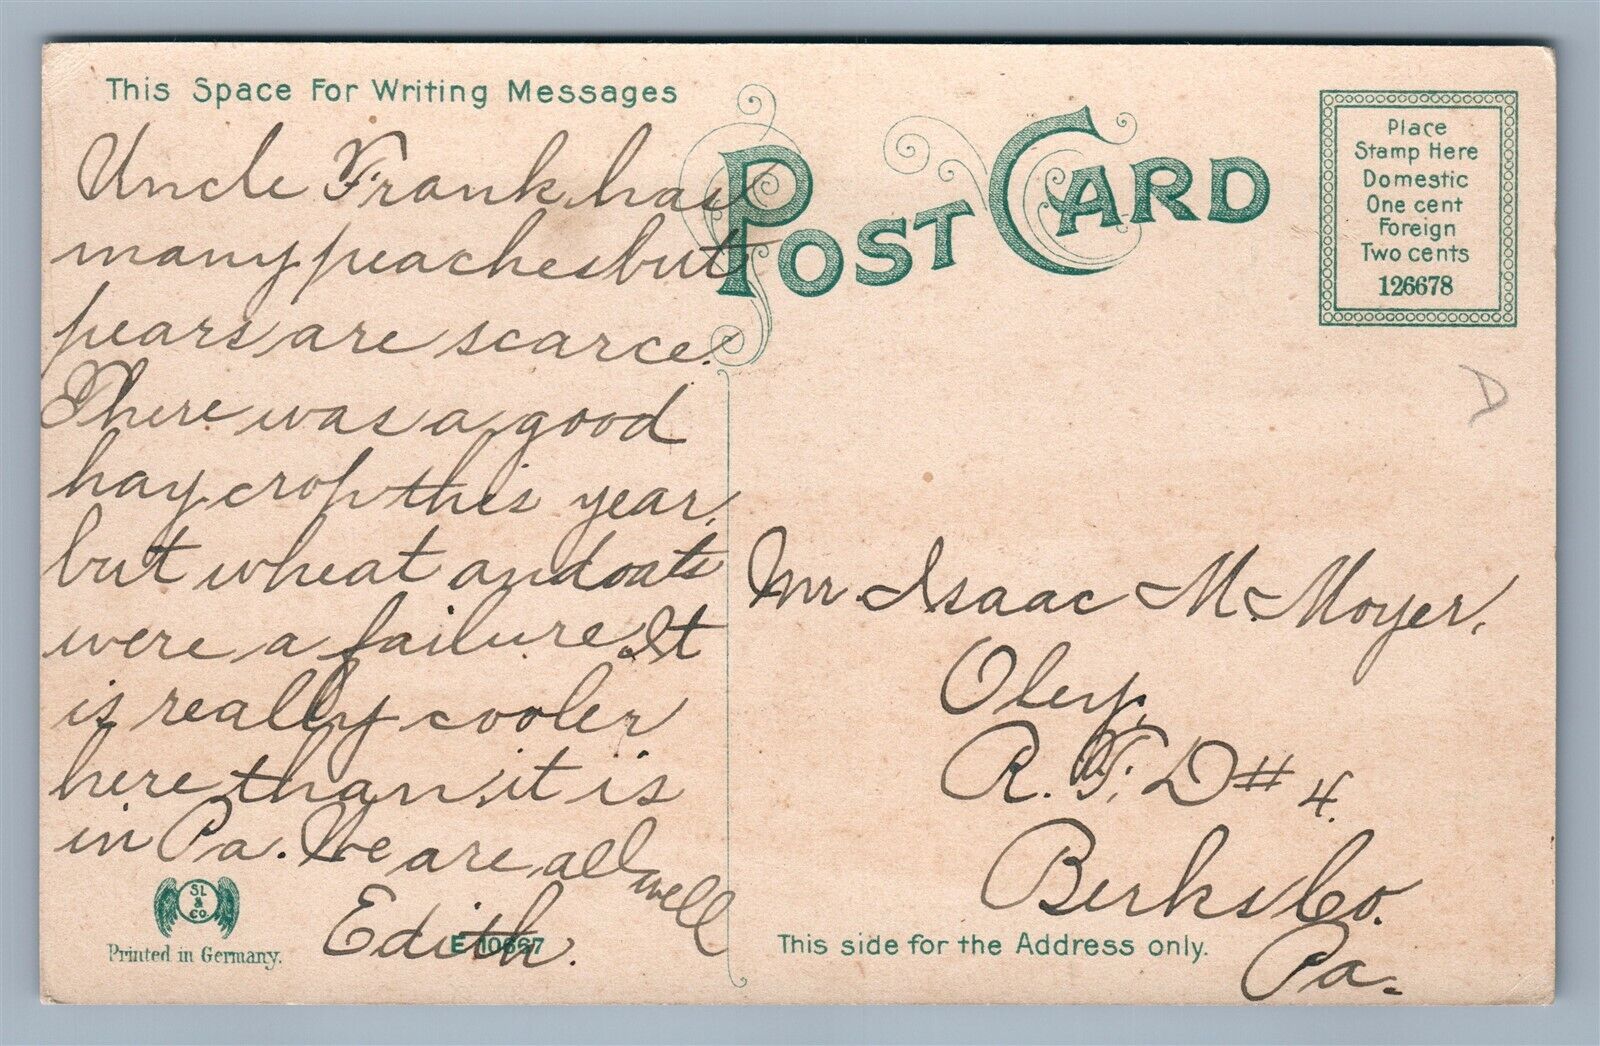 This Space For Writing Messages
Uncle Frank has
many peaches but
pears are scarce.
There was a good
hay crop this year,
but wheat and oats
were a failure. It
is really cooler
here than it is
in Pa. We are all
well
Edith.
SL
&
CO
Printed in Germany.
E 10667
POST CARD
Place
Stamp Here
Domestic
One cent
Foreign
Two cents
126678
D
Mr. Isaac M. Moyer,
Oley,
R. F. D # 4.
Berks Co.
Pa.
This side for the Address only.